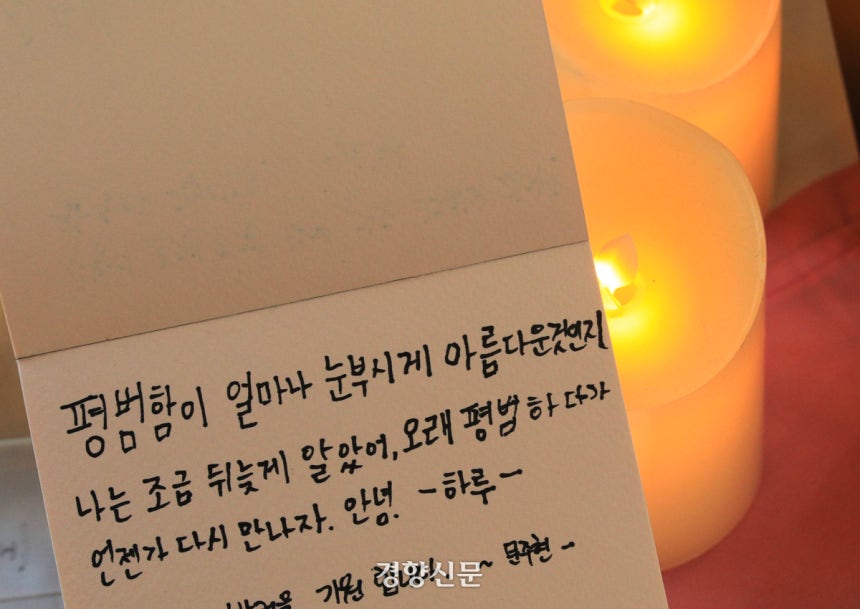 평범함이 얼마나 눈부시게 아름다운것인지
나는 조금 뒤늦게 알았어, 오래 평범하다가
언젠가 다시 만나자. 안녕. -하루-
기원 ~ 문주현 -
경향신문